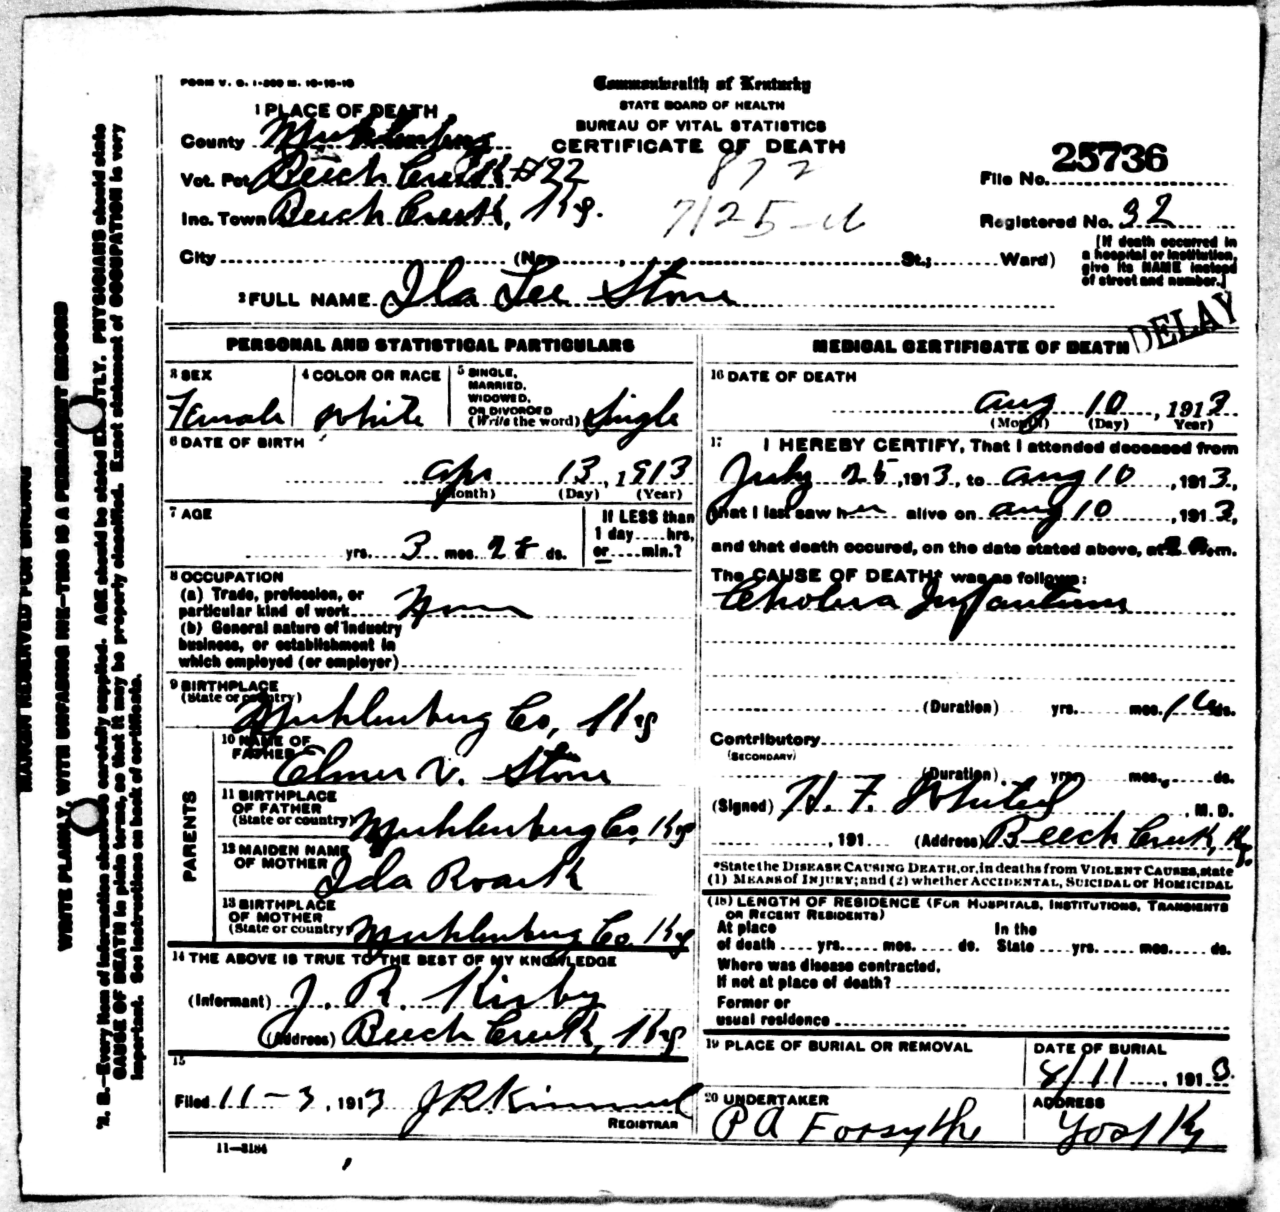 FORM V. S. 1-300 M. 10-10-10
Commonwealth of Kentucky
STATE BOARD OF HEALTH
BUREAU OF VITAL STATISTICS
CERTIFICATE OF DEATH
1 PLACE OF DEATH
County Muhlenberg
Vot. Pct. Beech Creek #22
Inc. Town Beech Creek, Ky.
City (No. , St.; Ward)
872
7/25-
File No. 25736
Registered No. 32
[If death occurred in
a hospital or institution,
give its NAME instead
of street and number.]
2 FULL NAME Ila Lee Stone
DELAY
PERSONAL AND STATISTICAL PARTICULARS
3 SEX
Female
4 COLOR OR RACE
White
5 SINGLE,
MARRIED,
WIDOWED,
OR DIVORCED
(Write the word) Single
6 DATE OF BIRTH
Apr 13, 1913
(Month) (Day) (Year)
7 AGE
yrs. 3 mos. 28 ds.
If LESS than
1 day ....hrs,
or.....min.?
8 OCCUPATION
(a) Trade, profession, or
particular kind of work
(b) General nature of Industry
business, or establishment in
which employed (or employer)
9 BIRTHPLACE
(State or country)
Muhlenburg Co, Ky
PARENTS
10 NAME OF
FATHER
Elmer V. Stone
11 BIRTHPLACE
OF FATHER
(State or country)
Muhlenburg Co, Ky
12 MAIDEN NAME
OF MOTHER
Ida Roark
13 BIRTHPLACE
OF MOTHER
(State or country)
Muhlenburg Co. Ky
14 THE ABOVE IS TRUE TO THE BEST OF MY KNOWLEDGE
(Informant) J. R. Kirby
(Address) Beech Creek, Ky
15
Filed 11-3, 1913 J R Kimmel
REGISTRAR
11-3184
MEDICAL CERTIFICATE OF DEATH
16 DATE OF DEATH
Aug 10, 1913
(Month) (Day) Year)
17 I HEREBY CERTIFY, That I attended deceased from
July 25, 1913, to Aug 10, 1913,
that I last saw her alive on Aug 10, 1913,
and that death occured, on the date stated above, at m.
The CAUSE OF DEATH* was as follows:
Cholera Infantum
(Duration) yrs. mos. 16 ds.
Contributory
(SECONDARY)
(Duration) yrs. mos. ds.
(Signed) H. F. , M. D.
, 191 (Address) Beech Creek, Ky.
*State the DISEASE CAUSING DEATH, or, in deaths from VIOLENT CAUSES, state
(1) MEANS of INJURY; and (2) whether ACCIDENTAL, SUICIDAL or HOMICIDAL
(18) LENGTH OF RESIDENCE (FOR HOSPITALS, INSTITUTIONS, TRANSIENTS
OR RECENT RESIDENTS)
At place In the
of death .... yrs. mos. ds. State .... yrs. mos. ds.
Where was disease contracted,
If not at place of death?
Former or
usual residence
19 PLACE OF BURIAL OR REMOVAL
DATE OF BURIAL
8/11, 1913.
20 UNDERTAKER
P A Forsythe
ADDRESS
Yost Ky
MARGIN RESERVED FOR BINDING
WRITE PLAINLY, WITH UNFADING INK—THIS IS A PERMANENT RECORD
N. B.—Every item of information should be carefully supplied. AGE should be stated EXACTLY. PHYSICIANS should state
CAUSE OF DEATH in plain terms, so that it may be properly classified. Exact statement of OCCUPATION is very
important. See instructions on back of certificate.